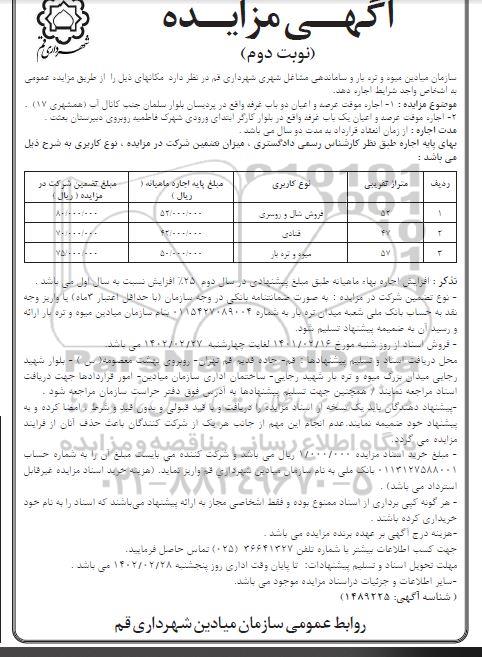 آگهی مزایده
(نوبت دوم)
شهرداری قم
سازمان میادین میوه و تره بار و ساماندهی مشاغل شهری شهرداری قم در نظر دارد مکانهای ذیل را از طریق مزایده عمومی
به اشخاص واجد شرایط اجاره دهد.
موضوع مزایده : ۱- اجاره موقت عرصه و اعیان دو باب غرفه واقع در پردیسان بلوار سلمان جنب کانال آب (همشهری ۱۷) .
۲- اجاره موقت عرصه و اعیان یک باب غرفه واقع در بلوار کارگر ابتدای ورودی شهرک فاطمیه روبروی دبیرستان بعثت .
مدت اجاره : از زمان انعقاد قرارداد به مدت دو سال می باشد .
بهای پایه اجاره طبق نظر کارشناس رسمی دادگستری ، میزان تضمین شرکت در مزایده ، نوع کاربری به شرح ذیل
می باشد :
ردیف متراژ تقریبی نوع کاربری مبلغ پایه اجاره ماهیانه ( ریال ) مبلغ تضمین شرکت در مزایده ( ریال )
۱ ۵۲ فروش شال و روسری ۵۲/۰۰۰/۰۰۰ ۸۰/۰۰۰/۰۰۰
۲ ۴۷ قنادی ۴۲/۰۰۰/۰۰۰ ۷۰/۰۰۰/۰۰۰
۳ ۵۷ میوه و تره بار ۵۰/۰۰۰/۰۰۰ ۷۵/۰۰۰/۰۰۰
تذکر : افزایش اجاره بهاء ماهیانه طبق مبلغ پیشنهادی در سال دوم ۲۵٪ افزایش نسبت به سال اول می باشد .
- نوع تضمین شرکت در مزایده : به صورت ضمانتنامه بانکی در وجه سازمان (با حداقل اعتبار ۳ماه) یا واریز وجه
نقد به حساب بانک ملی شعبه میدان تره بار به شماره ۰۱۱۵۴۲۷۰۸۹۰۰۴ بنام سازمان میادین میوه و تره بار ارائه
و رسید آن به ضمیمه پیشنهاد تسلیم شود.
- فروش اسناد از روز شنبه مورخ ۱۴۰۱/۰۲/۱۶ لغایت چهارشنبه ۱۴۰۲/۰۲/۲۷ می باشد.
محل دریافت اسناد و تسلیم پیشنهادها : قم- جاده قدیم قم تهران- روبروی بهشت معصومه( س ) - بلوار شهید
رجایی میدان بزرگ میوه و تره بار شهید رجایی- ساختمان اداری سازمان میادین- امور قراردادها جهت دریافت
اسناد مراجعه نمایند / همچنین جهت تسلیم پیشنهادها به آدرس فوق دفتر حراست سازمان مراجعه شود .
-پیشنهاد دهندگان باید یک نسخه از اسناد مزایده را دریافت و با قید قبولی و بدون قید و شرط ، امضا کرده و به
پیشنهاد خود ضمیمه نمایند.عدم انجام این مهم از جانب هریک از شرکت کنندگان باعث حذف آنان از فرایند
مزایده می گردد.
- مبلغ خرید اسناد مزایده ۱/۰۰۰/۰۰۰ ریال می باشد و شرکت کننده می بایست مبلغ آن را به شماره حساب
۰۱۱۳۱۲۷۵۸۸۰۰۱ بانک ملی به نام سازمان میادین شهرداری قم واریز نماید. (هزینه خرید اسناد مزایده غیرقابل
استرداد می باشد) .
- هر گونه کپی برداری از اسناد ممنوع بوده و فقط اشخاصی مجاز به ارائه پیشنهاد می‌باشند که اسناد را به نام خود
خریداری کرده باشند .
-هزینه درج آگهی بر عهده برنده مزایده می باشد .
جهت کسب اطلاعات بیشتر با شماره تلفن ۳۶۶۴۱۳۲۷ (۰۲۵) تماس حاصل فرمایید.
مهلت تحویل اسناد و تسلیم پیشنهادات: تا پایان وقت اداری روز پنجشنبه ۱۴۰۲/۰۲/۲۸ می باشد .
-سایر اطلاعات و جزئیات دراسناد مزایده موجود می باشد.
( شناسه آگهی: ۱۴۸۹۲۲۵)
روابط عمومی سازمان میادین شهرداری قم
پایگاه اطلاع رسانی مناقصه و مزایده
۰۲۱-۸۸۳۴۹۶۷۰-۵